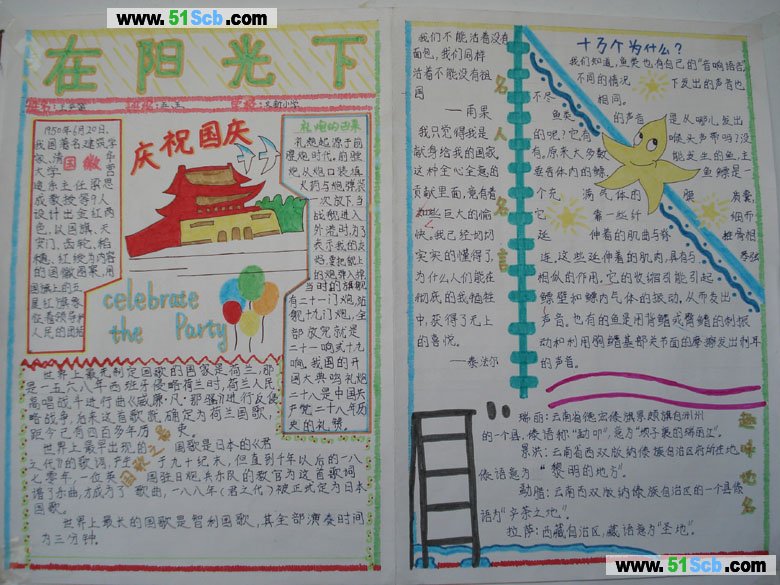 www.51Scb.com
www.51Scb.com
在阳光下
1950年6月20日,
我国著名建筑学
家、清
国徽
大学
造系主任梁思
成教授等9人
设计出金红两
色,以国旗、天
安门、齿轮、稻
穗、红绶为内容
的国徽图案,用
国旗上的五
星红旗象
征着领导下
人民的团结
庆祝国庆
celebrate
the Party
礼炮的由来
礼炮起源于前
膛炮时代。前膛
炮从炮口装填
火药与炮弹,装
一次放下,当
战舰进入
外港时,为了
表示我的友
当时的旗舰
有二十一门炮,站
舰十九门炮,全
部放完就是
二十一响或十九
响。我国的开
国大典鸣礼炮
二十八是中国共
产党二十八年历
史的礼赞。
世界上最先制定国歌的国家是荷兰,那
是一五六八年西班牙侵略荷兰时,荷兰人民
高唱战斗进行曲《威廉·凡·那骚》进行反侵
略战争,后来这首歌就确定为荷兰国歌,
距今已有四百多年历史。
世界上最早出现的国歌是日本的《君
之代》的歌词,产生于九十纪末,但直到千年以后的一八
七零年,一位英国驻日炮兵乐队的教官为这首歌词
谱了乐曲,才成为了歌曲,一八八年《君之代》被正式定为日本
国歌。
世界上最长的国歌是智利国歌,其全部演奏时间
为三分钟。
我们不能活着没有
面包,我们同样
活着不能没有祖
国
——雨果
我只觉得我是
献身给我的国家。
这种全心全意的
贡献里面,竟有着
些巨大的愉
快。我已经切切
实实的懂得了,
为什么人们能在
彻底的自我牺牲
中,获得了无上
的喜悦。
——泰法尔
名人名言
十万个为什么?
我们知道,鱼类也有自己的"音响语言"
不同的情况下发出的声音也
不尽相同。
鱼类的声音是从哪儿发出
的呢?它有喉头声带吗?没
有。原来大多数能发生的鱼,主
要音体内的鳔鱼鳔是一
个充满气体的膜质囊,
它靠一些纤细而
延伸着的肌曲与脊椎骨相
连,这些延伸着的肌肉,具有与琴弦
相似的作用。它的收缩引能引起
鳔壁和鳔内气体的振动,从而发出
声音。也有的鱼是用背鳍或臀鳍的刺振
动和利用胸鳍基部关节面的摩擦发出刺耳
的声音。
趣味地名
瑞丽:云南省德宏傣族景颇族自治州州
的一个县,傣语称"勐卯",意为"坝子裹的瑞丽江"。
景洪:云南省西双版纳傣族自治区府所在地。
傣语意为"黎明的地方"。
勐腊:云南西双版纳傣族自治区的一个县傣
语为"产茶之地"。
拉萨:西藏自治区,藏语意为"圣地"。
www.51Scb.com
www.51Scb.com